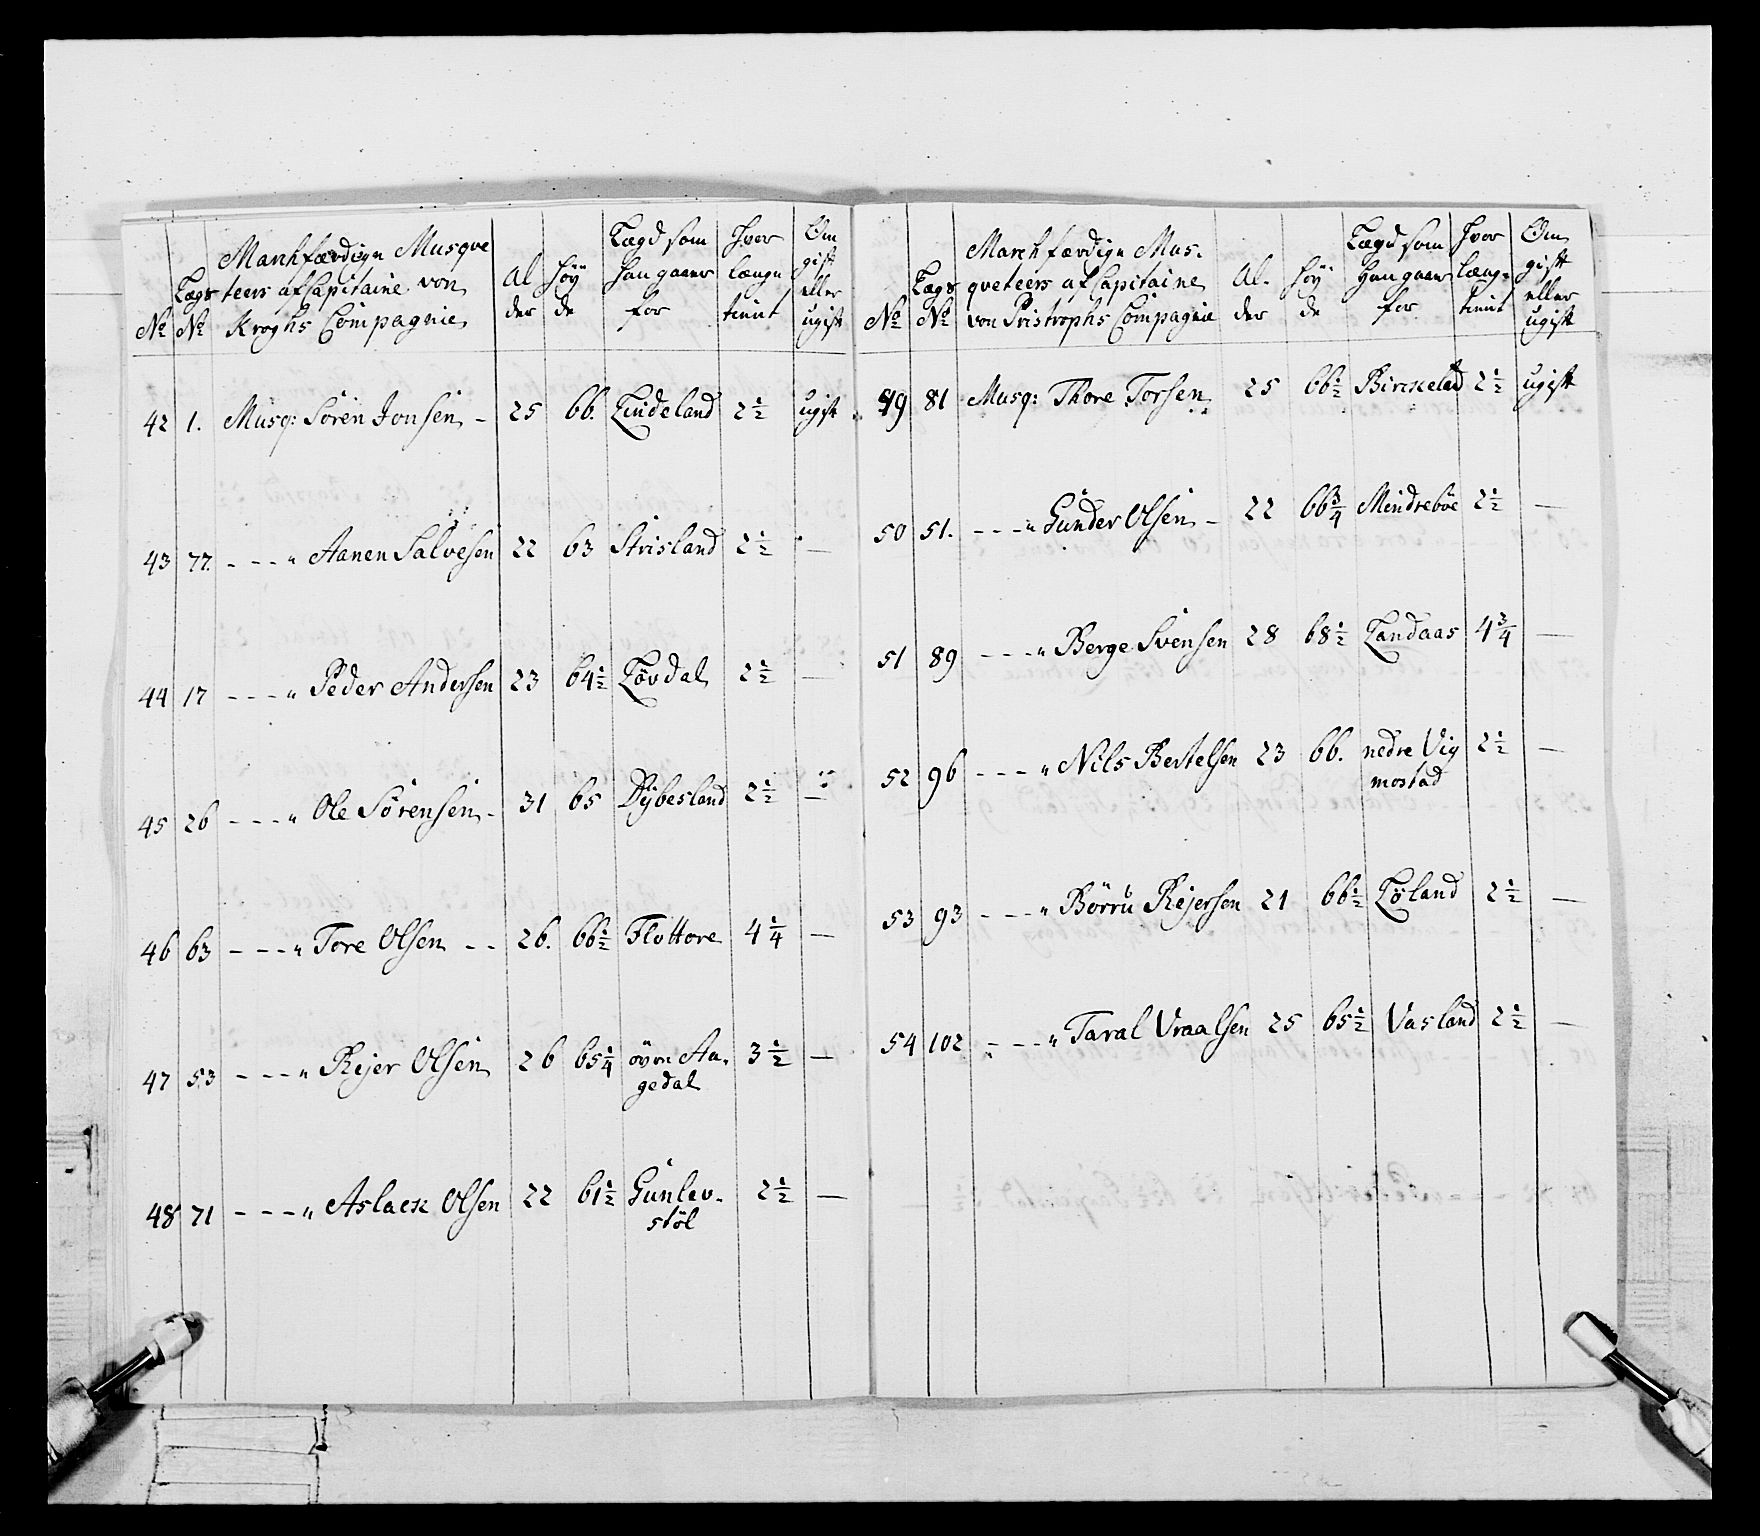 Marchfærdige Musqve
teers af Capitaine von
Kroghs Compagnie
No
Lægs No
Al der
Høy de
Lægd som han gaaer for
Hvor længe tient
Om gift eller ugift
42 1. Musq: Sören Jonsen - 25 66. Lindeland 2½ ugift
43 77. - - - „ Aanen Salvesen 22 63 Strisland 2½ —
44 17 - - - „ Peder Andersen 23 64½ Lövdal 2½ —
45 26 - - - „ Ole Sörensen - 31 65 Dybesland 2½ —
46 63 - - - „ Tore Olsen - - 26. 66½ Flottore 4¼ —
47 53 - - - „ Rejer Olsen 26 65¼ övre Aa-
gedal 3½ —
48 71 - - - „ Aslack Olsen 22 61½ Gunlev-
stöl 2½ —
Marchfærdige Mus-
qveteers af Capitaine
von Pristrophs Compagnie
No
Lægs No
Al- der
Høy de
Lægd som han gaaer for
Hvor læng- tient
Om gift eller ugift
49 81 Musq: Thore Torsen 25 66½ Birckelad 2½ ugift
50 51. - - - „ Gunder Olsen - 22 66¾ Mindreböe 2½ —
51 89 - - - „ Berge Svensen 28 68½ Landaas 4¾ —
52 96 - - - „ Nils Bertelsen 23 66. nedre Vig
mostad 2½ —
53 93 - - - „ Börru Rejersen 21 66½ Löland 2½ —
54 102 - - - „ Taral Vraalsen 25 65½ Vasland 2½ —